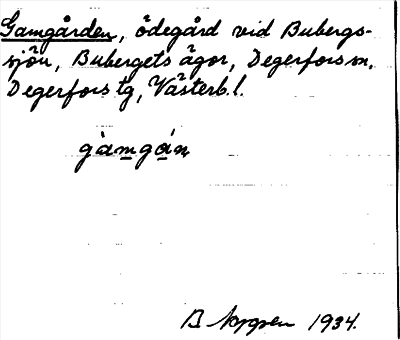 Gamgården, ödegård vid Bubergs-
sjön, Bubergets ägor, Degerfors sn,
Degerfors tg, Västerb. l.
gàmgán
B Nygren 1934.